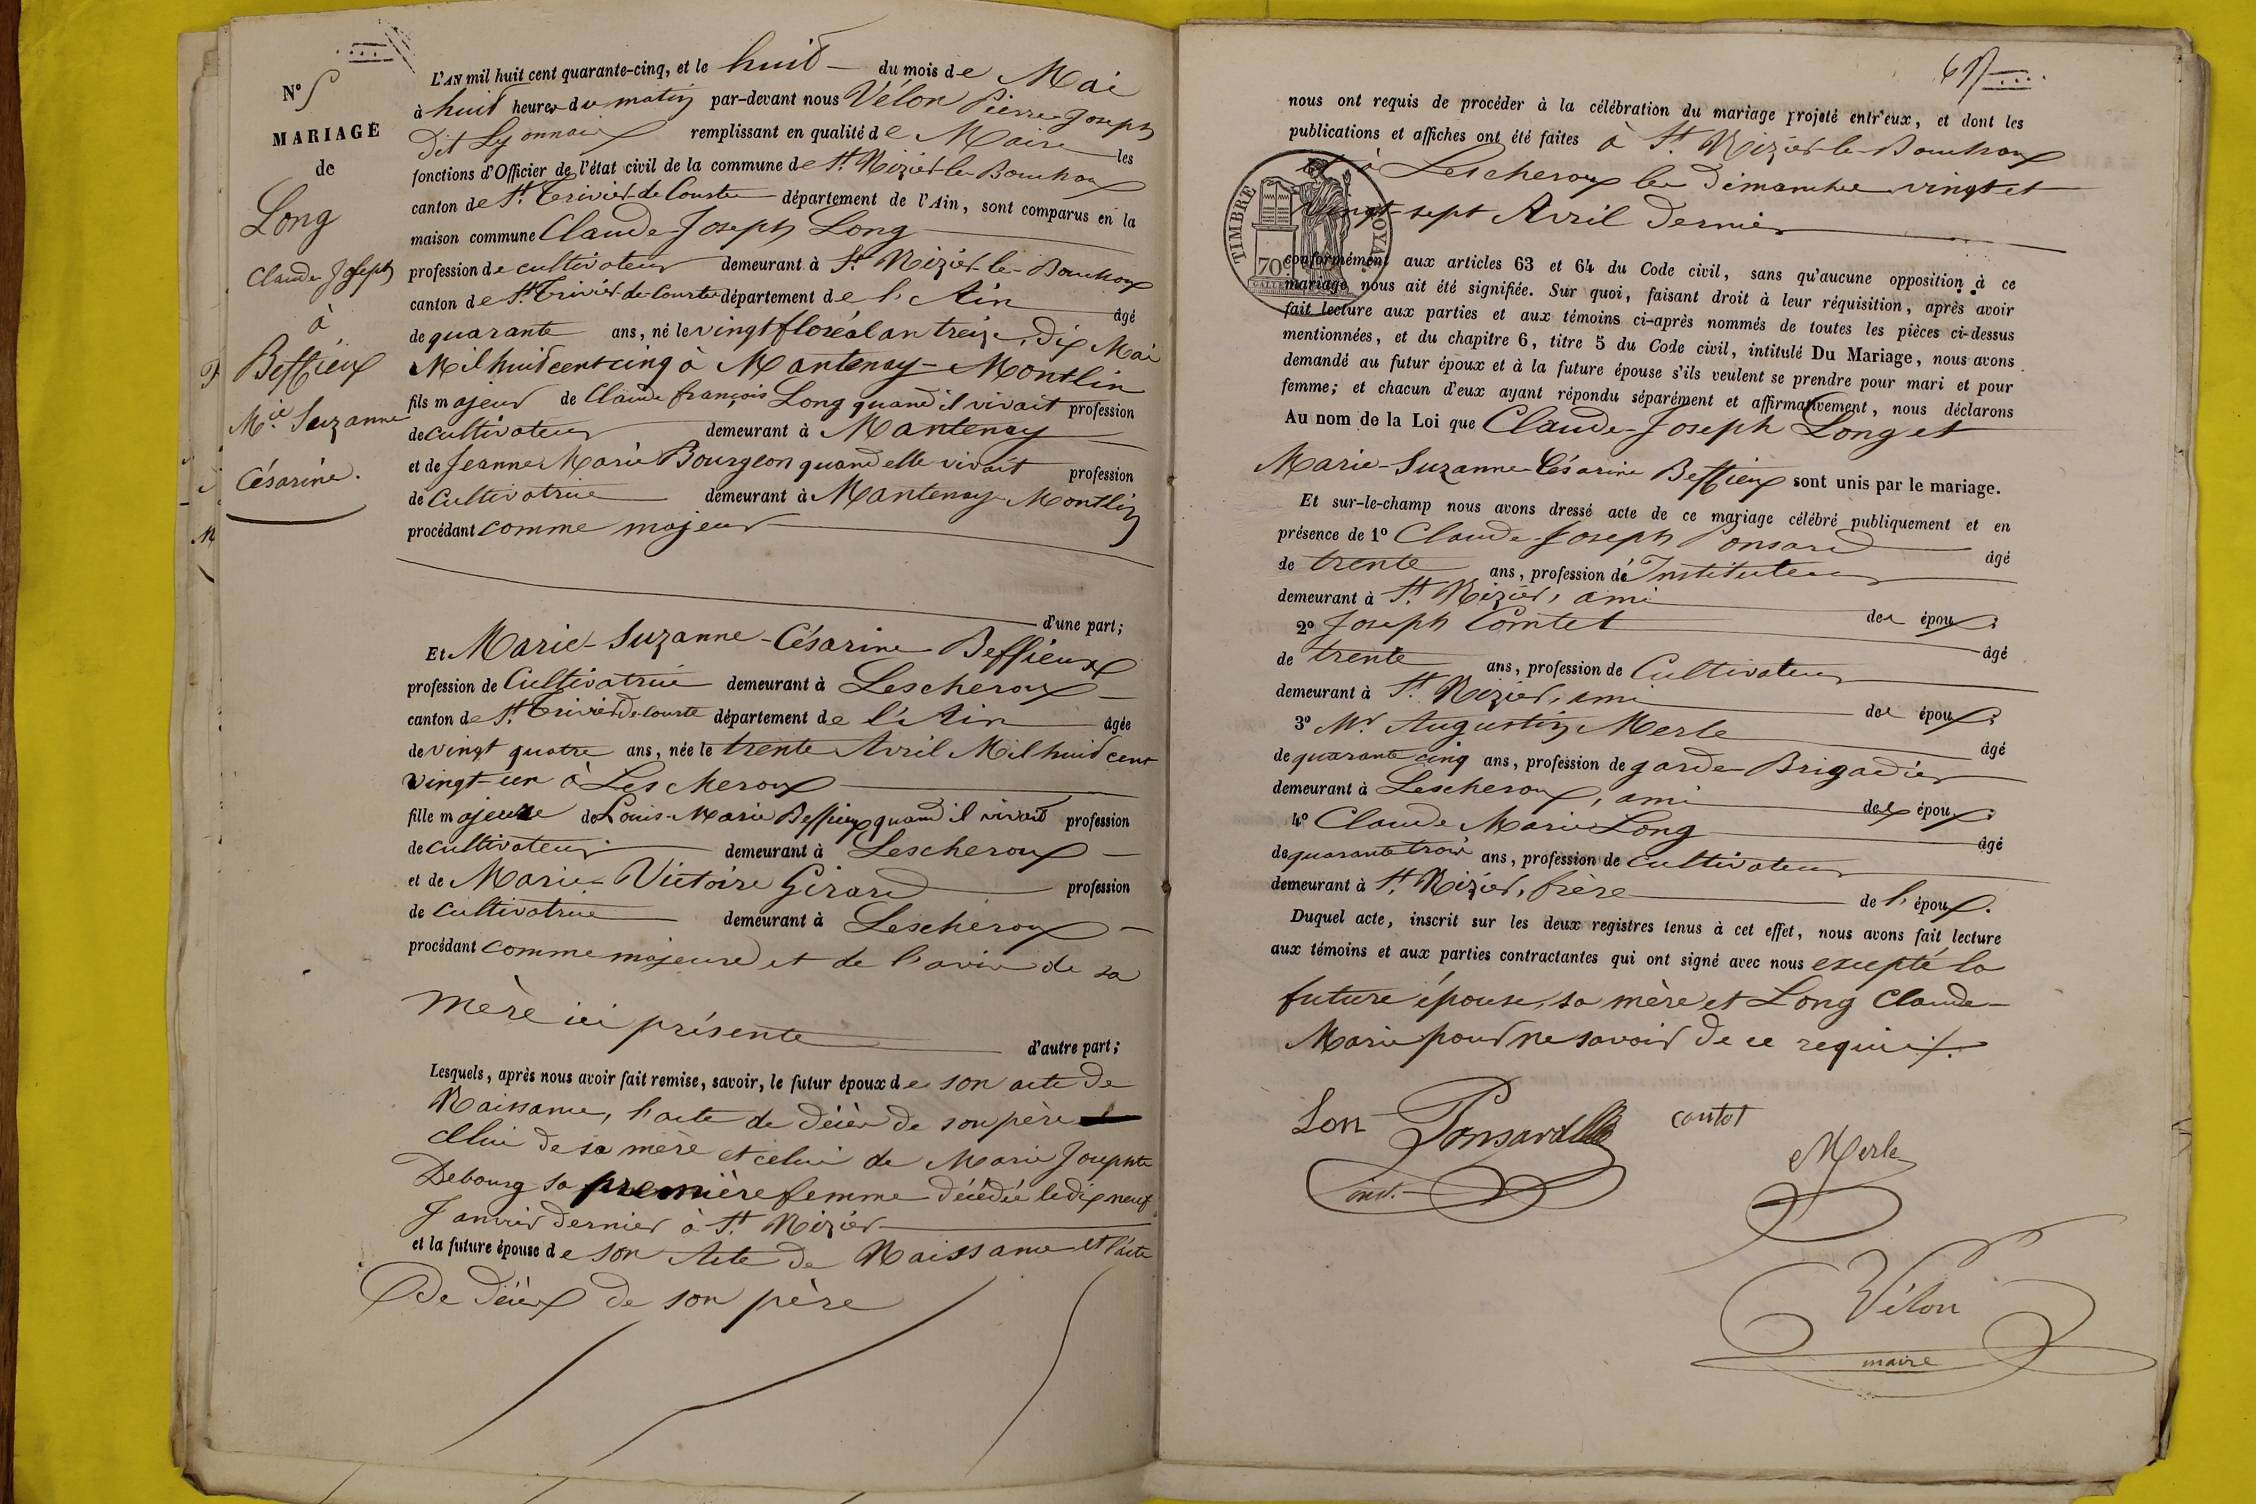 N° 5
MARIAGE
de
Long
Claude Joseph
à
Beffieux
M.ie Suzanne
Césarine.
L'AN mil huit cent quarante-cinq, et le huit du mois de Mai
à huit heures du matin par-devant nous Vélon Pierre Joseph
dit Lyonnais remplissant en qualité de Maire les
fonctions d'Officier de l'état civil de la commune de St. Nizier-le-Bouchoux
canton de St. Trivier-de-Courtes département de l'Ain, sont comparus en la
maison commune Claude-Joseph Long
profession de cultivateur demeurant à St. Nizier-le-Bouchoux
canton de St. Trivier-de-Courtes département de l'Ain âgé
de quarante ans, né le vingt floréal an treize, dix Mai
Mil huit cent cinq à Mantenay-Montlin
fils majeur de Claude françois Long quand il vivait profession
de cultivateur demeurant à Mantenay
et de Jeanne Marie Bourgeon quand elle vivait profession
de cultivatrice demeurant à Mantenay-Montlin
procédant comme majeur
d'une part;
Et Marie-Suzanne-Césarine Beffieux
profession de Cultivatrice demeurant à Lescheroux
canton de St. Trivier de Courtes département de l'Ain âgée
de vingt quatre ans, née le trente Avril Mil huit cent
vingt-un à Lescheroux
fille majeure de Louis-Marie Beffieux quand il vivait profession
de cultivateur demeurant à Lescheroux
et de Marie-Victoire Girard profession
de cultivatrice demeurant à Lescheroux
procédant comme majeure et de l'avis de sa
mère ici présente d'autre part;
Lesquels, après nous avoir fait remise, savoir, le futur époux de son acte de
Naissance, l'acte de décès de son père
celui de sa mère et celui de Marie Josephte
Debourg sa première femme décédée le dix neuf
Janvier dernier à St. Nizier
et la future épouse de son Acte de Naissance et l'acte
de décès de son père
nous ont requis de procéder à la célébration du mariage projeté entr'eux, et dont les
publications et affiches ont été faites à St. Nizier-le-Bouchoux
et à Lescheroux les dimanches vingt et
vingt-sept Avril dernier
TIMBRE ROYAL
70c
conformément aux articles 63 et 64 du Code civil, sans qu'aucune opposition à ce
mariage nous ait été signifiée. Sur quoi, faisant droit à leur réquisition, après avoir
fait lecture aux parties et aux témoins ci-après nommés de toutes les pièces ci-dessus
mentionnées, et du chapitre 6, titre 5 du Code civil, intitulé Du Mariage, nous avons
demandé au futur époux et à la future épouse s'ils veulent se prendre pour mari et pour
femme; et chacun d'eux ayant répondu séparément et affirmativement, nous déclarons
Au nom de la Loi que Claude-Joseph Long et
Marie-Suzanne-Césarine Beffieux sont unis par le mariage.
Et sur-le-champ nous avons dressé acte de ce mariage célébré publiquement et en
présence de 1° Claude-Joseph Ponsard âgé
de trente ans, profession d'Instituteur
demeurant à St. Nizier, ami des époux;
2° Joseph Comtet âgé
de trente ans, profession de Cultivateur
demeurant à St. Nizier, ami des époux;
3° Mr. Augustin Merle âgé
de quarante cinq ans, profession de garde-Brigadier
demeurant à Lescheroux, ami des époux;
4° Claude Marie Long âgé
de quarante trois ans, profession de cultivateur
demeurant à St. Nizier, frère de l'époux.
Duquel acte, inscrit sur les deux registres tenus à cet effet, nous avons fait lecture
aux témoins et aux parties contractantes qui ont signé avec nous excepté la
future épouse, sa mère et Long Claude-
Marie pour ne savoir de ce requis.
Lon Ponsard contet
inst. Merle
Vélon
maire